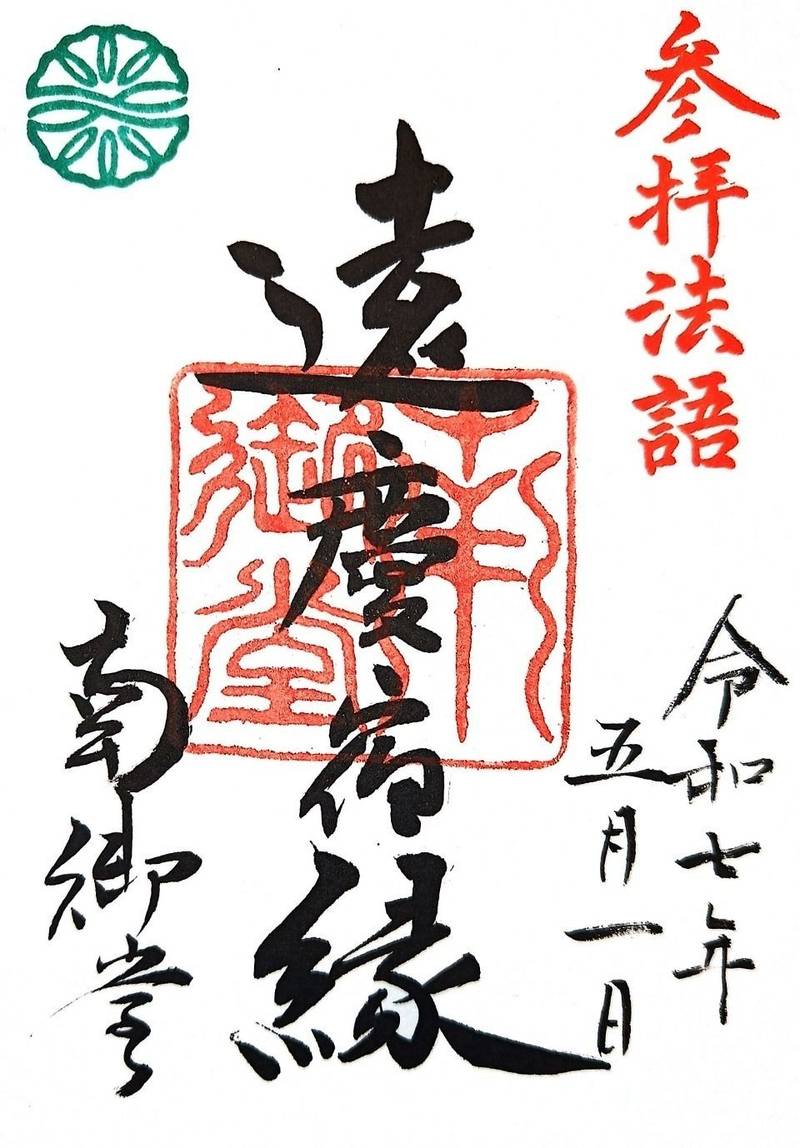 参拝法語
令和七年
五月一日
遠慶宿縁
南御堂